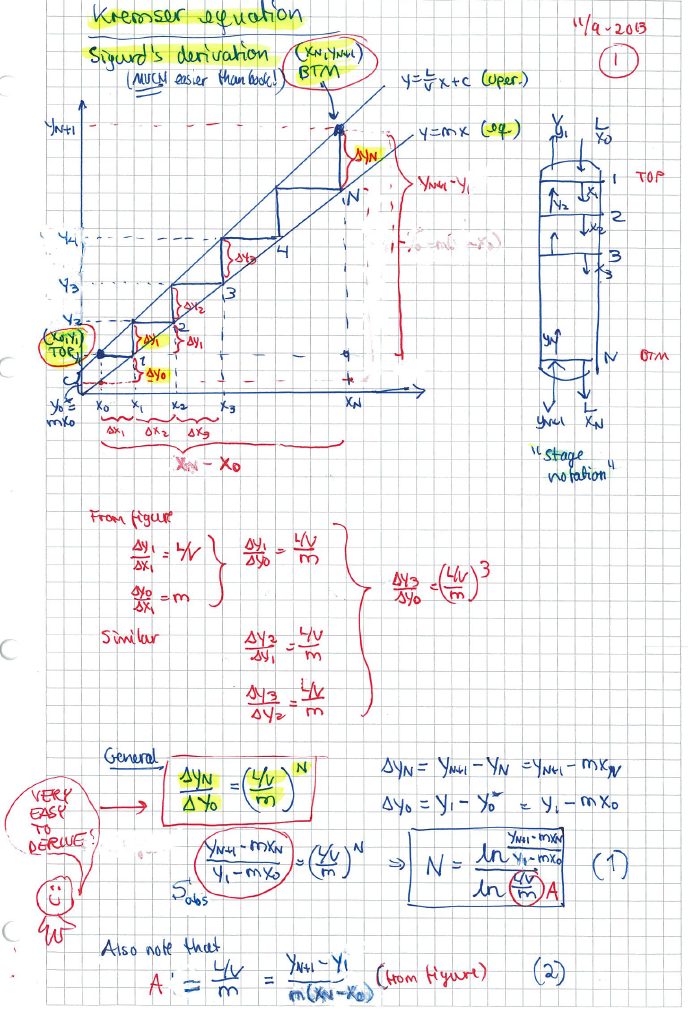 Kremser equation
11/9-2013
1
Sigurd's derivation
(MUCH easier than book!)
(xN, yN+1)
BTM
y = L/V x + c (oper.)
y = mx (eq)
yN+1
ΔyN
N
yN+1 - y1
y4
4
Δy3
y3
3
Δy2
y2
2
Δy1
Δy1
(x0, y1)
TOP
1
Δy0
c
y0* =
mx0
x0 x1 x2 x3 xN
Δx1 Δx2 Δx3
xN - x0
V L
y1 x0
1 TOP
x1
y2
2
x2
3
x3
yN
N BTM
L
yN+1 xN
"stage
notation"
From figure
Δy1/Δx1 = L/V
Δy0/Δx1 = m
Δy1/Δy0 = (L/V)/m
Δy3/Δy0 = ((L/V)/m)^3
Similar
Δy2/Δy1 = (L/V)/m
Δy3/Δy2 = (L/V)/m
General
ΔyN/Δy0 = ((L/V)/m)^N
ΔyN = yN+1 - yN = yN+1 - mxN
Δy0 = y1 - y0* = y1 - mx0
VERY
EASY
TO
DERIVE!
(yN+1 - mxN)/(y1 - mx0) = ((L/V)/m)^N ⇒ N = ln((yN+1 - mxN)/(y1 - mx0)) / ln((L/V)/m) A (1)
Sabs
Also note that
A = (L/V)/m = (yN+1 - y1)/(m(xN - x0)) (from figure) (2)